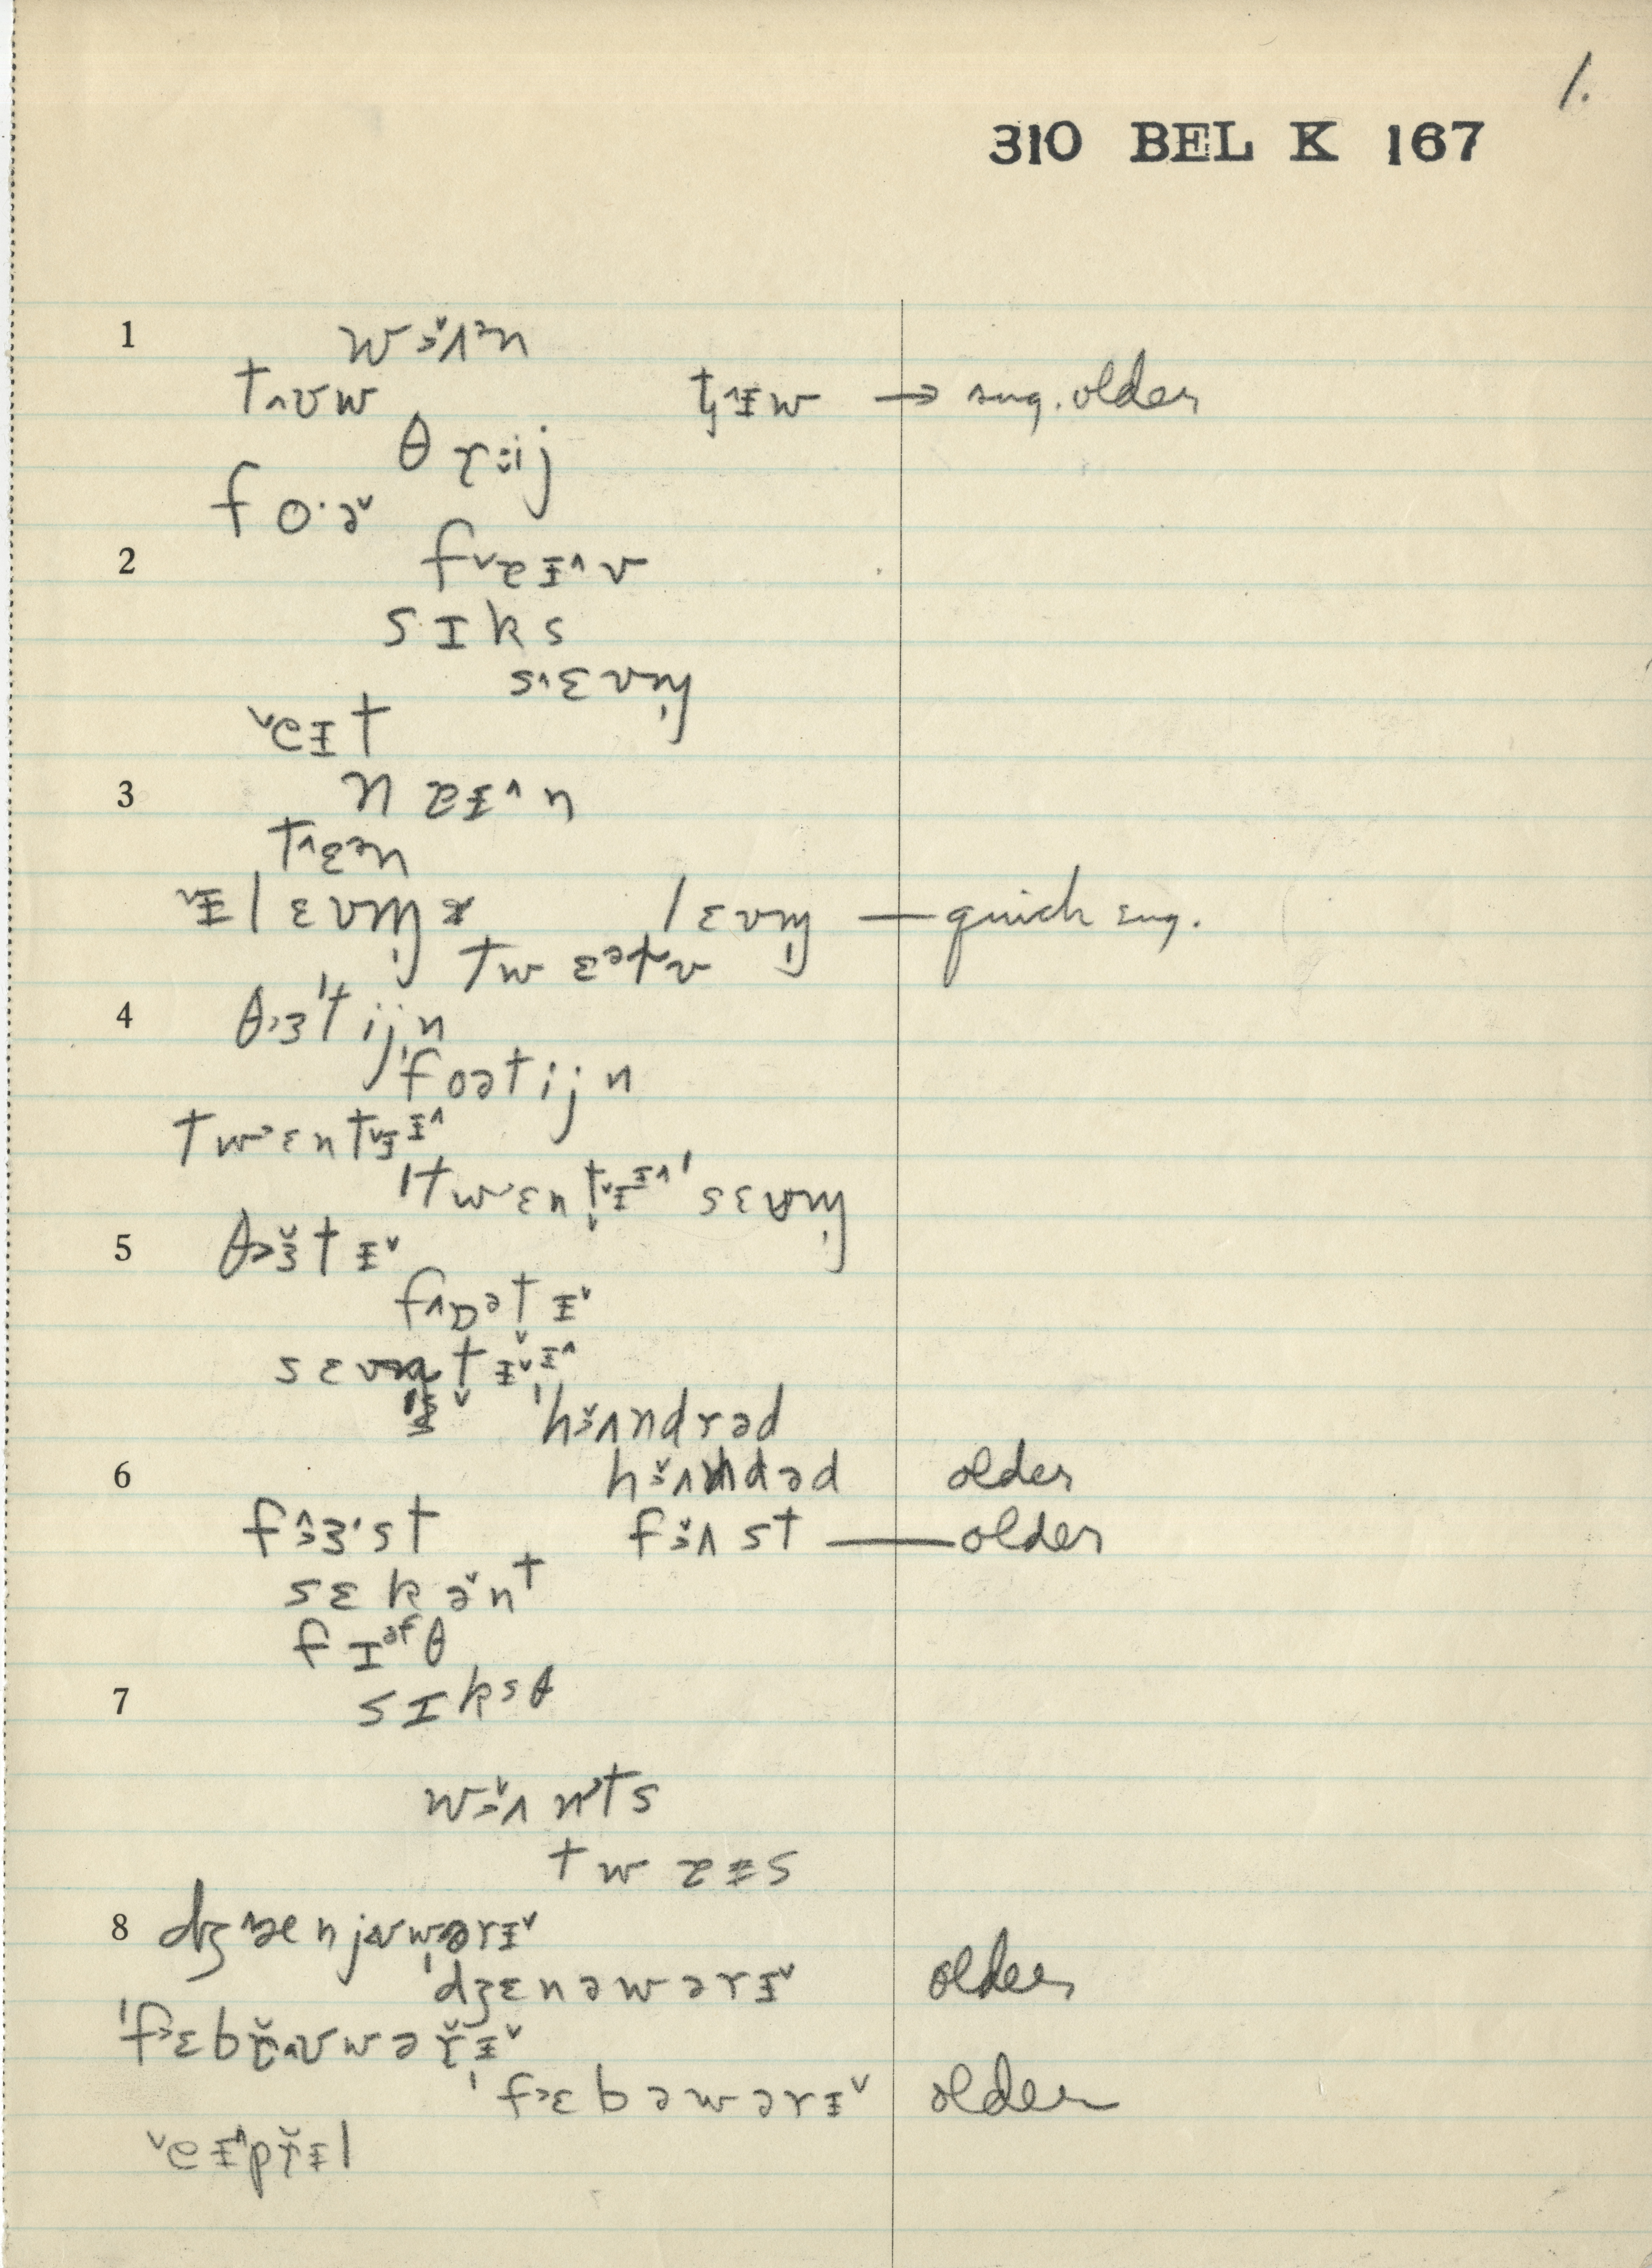 1.
310 BEL K 167
1 wɜ̌ʌᵊn
t˄ʊw t̡˄ɪw → sug. older
θ r i̬j
f o·ə˅
2 f˅ɐɪ˄v
s ɪ k s
s˄ɛvn̩
˅eɪt
3 n ɐɪ˄n
t˄ɛᵊn
˅ɪlɛvm̩ lɛvm̩ — quick sug.
tw ɛᵊtv
4 θɜ'tijn
'foətijn
tw˃ɛnt˅ɪɪ˄
'tw˃ɛnt̬˅ɪɪ˄'sɛvm̩
5 θ˃ɜ̌tɪ˅
f˄ɒᵊt̬ɪ˅
sɛvm̩t̬ɪ˅ɪ˄
'hɜ̌ʌndrəd
6 hɜ̌ʌndəd older
fɜ̂·st fɜ̌ʌst — older
sɛkə̌nt
fɪᵊfθ
7 sɪksθ
wɜ̌ʌnts
twɐɪs
8 dʒ˄ænjʊwərɪ˅
'dʒɛnəwərɪ˅ older
'f˃ɛbř˄ʊwəřɪ˅
'f˃ɛbəwərɪ˅ older
˅eɪ˄přɪl